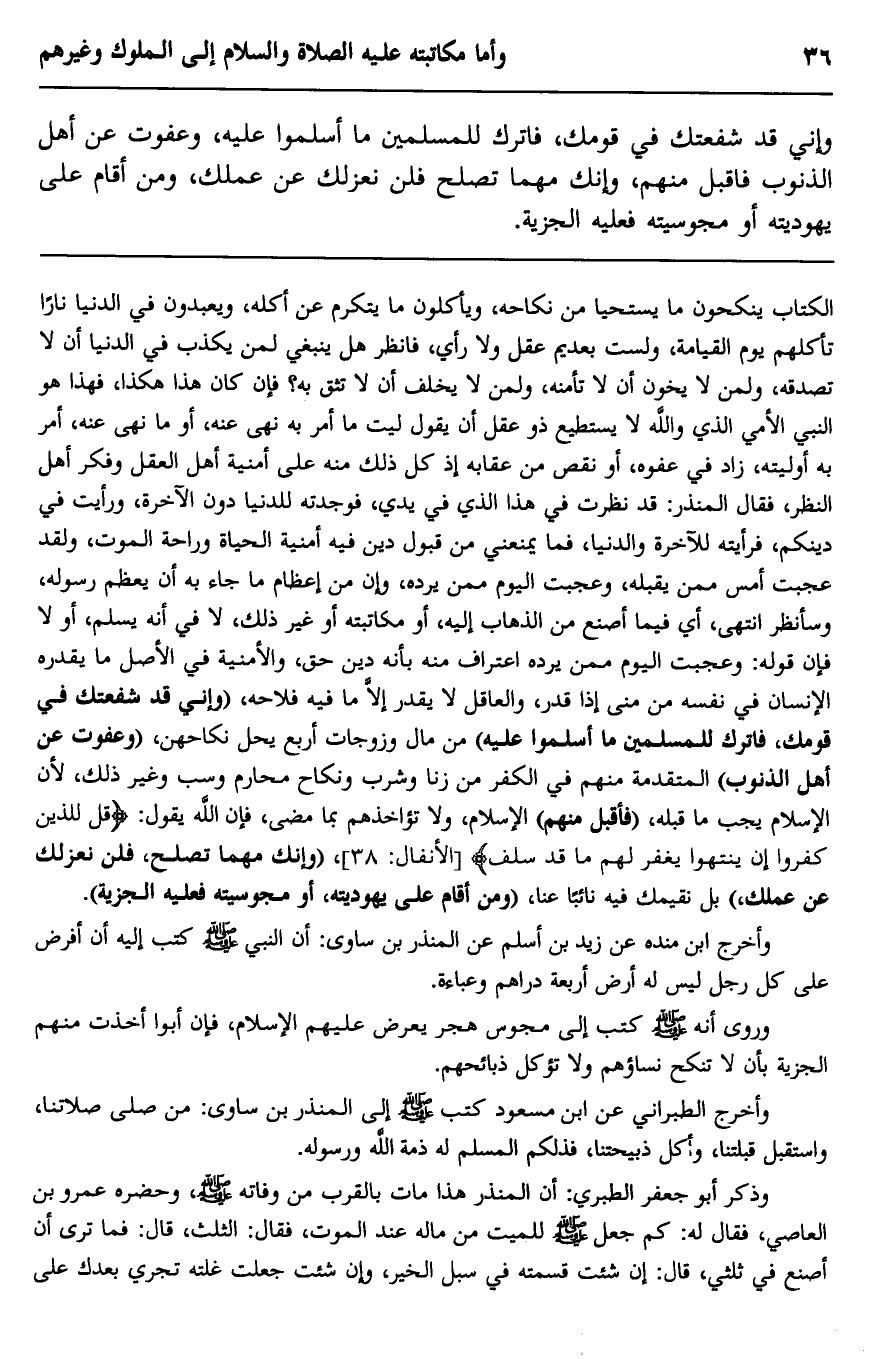 ٣٦ وأما مكاتبته عليه الصلاة والسلام إلى الملوك وغيرهم
وإني قد شفعتك في قومك، فاترك للمسلمين ما أسلموا عليه، وعفوت عن أهل
الذنوب فاقبل منهم، وإنك مهما تصلح فلن نعزلك عن عملك، ومن أقام على
يهوديته أو مجوسيته فعليه الجزية.
الكتاب ينكحون ما يستحيا من نكاحه، ويأكلون ما يتكرم عن أكله، ويعبدون في الدنيا نارًا
تأكلهم يوم القيامة، ولست بعديم عقل ولا رأي، فانظر هل ينبغي لمن يكذب في الدنيا أن لا
تصدقه، ولمن لا يخون أن لا تأمنه، ولمن لا يخلف أن لا تثق به؟ فإن كان هذا هكذا، فهذا هو
النبي الأمي الذي واللَّه لا يستطيع ذو عقل أن يقول ليت ما أمر به نهى عنه، أو ما نهى عنه، أمر
به أوليته، زاد في عفوه، أو نقص من عقابه إذ كل ذلك منه على أمنية أهل العقل وفكر أهل
النظر، فقال المنذر: قد نظرت في هذا الذي في يدي، فوجدته للدنيا دون الآخرة، ورأيت في
دينكم، فرأيته للآخرة والدنيا، فما يمنعني من قبول دين فيه أمنية الحياة وراحة الموت، ولقد
عجبت أمس ممن يقبله، وعجبت اليوم ممن يرده، وإن من إعظام ما جاء به أن يعظم رسوله،
وسأنظر انتهى، أي فيما أصنع من الذهاب إليه، أو مكاتبته أو غير ذلك، لا في أنه يسلم، أو لا
فإن قوله: وعجبت اليوم ممن يرده اعتراف منه بأنه دين حق، والأمنية في الأصل ما يقدره
الإنسان في نفسه من منى إذا قدر، والعاقل لا يقدر إلاَّ ما فيه فلاحه، (وإني قد شفعتك في
قومك، فاترك للمسلمين ما أسلموا عليه) من مال وزوجات أربع يحل نكاحهن، (وعفوت عن
أهل الذنوب) المتقدمة منهم في الكفر من زنا وشرب ونكاح محارم وسب وغير ذلك، لأن
الإسلام يجب ما قبله، (فأقبل منهم) الإسلام، ولا تؤاخذهم بما مضى، فإن اللَّه يقول: ﴿قل للذين
كفروا إن ينتهوا يغفر لهم ما قد سلف﴾ [الأنفال: ٣٨]، (وإنك مهما تصلح، فلن نعزلك
عن عملك،) بل نقيمك فيه نائبًا عنا، (ومن أقام على يهوديته، أو مجوسيته فعليه الجزية).
وأخرج ابن منده عن زيد بن أسلم عن المنذر بن ساوى: أن النبي ﷺ كتب إليه أن أفرض
على كل رجل ليس له أرض أربعة دراهم وعباءة.
وروى أنه ﷺ كتب إلى مجوس هجر يعرض عليهم الإسلام، فإن أبوا أخذت منهم
الجزية بأن لا تنكح نساؤهم ولا تؤكل ذبائحهم.
وأخرج الطبراني عن ابن مسعود كتب ﷺ إلى المنذر بن ساوى: من صلى صلاتنا،
واستقبل قبلتنا، وأكل ذبيحتنا، فذلكم المسلم له ذمة اللَّه ورسوله.
وذكر أبو جعفر الطبري: أن المنذر هذا مات بالقرب من وفاته ﷺ، وحضره عمرو بن
العاصي، فقال له: كم جعل ﷺ للميت من ماله عند الموت، فقال: الثلث، قال: فما ترى أن
أصنع في ثلثي، قال: إن شئت قسمته في سبل الخير، وإن شئت جعلت غلته تجري بعدك على